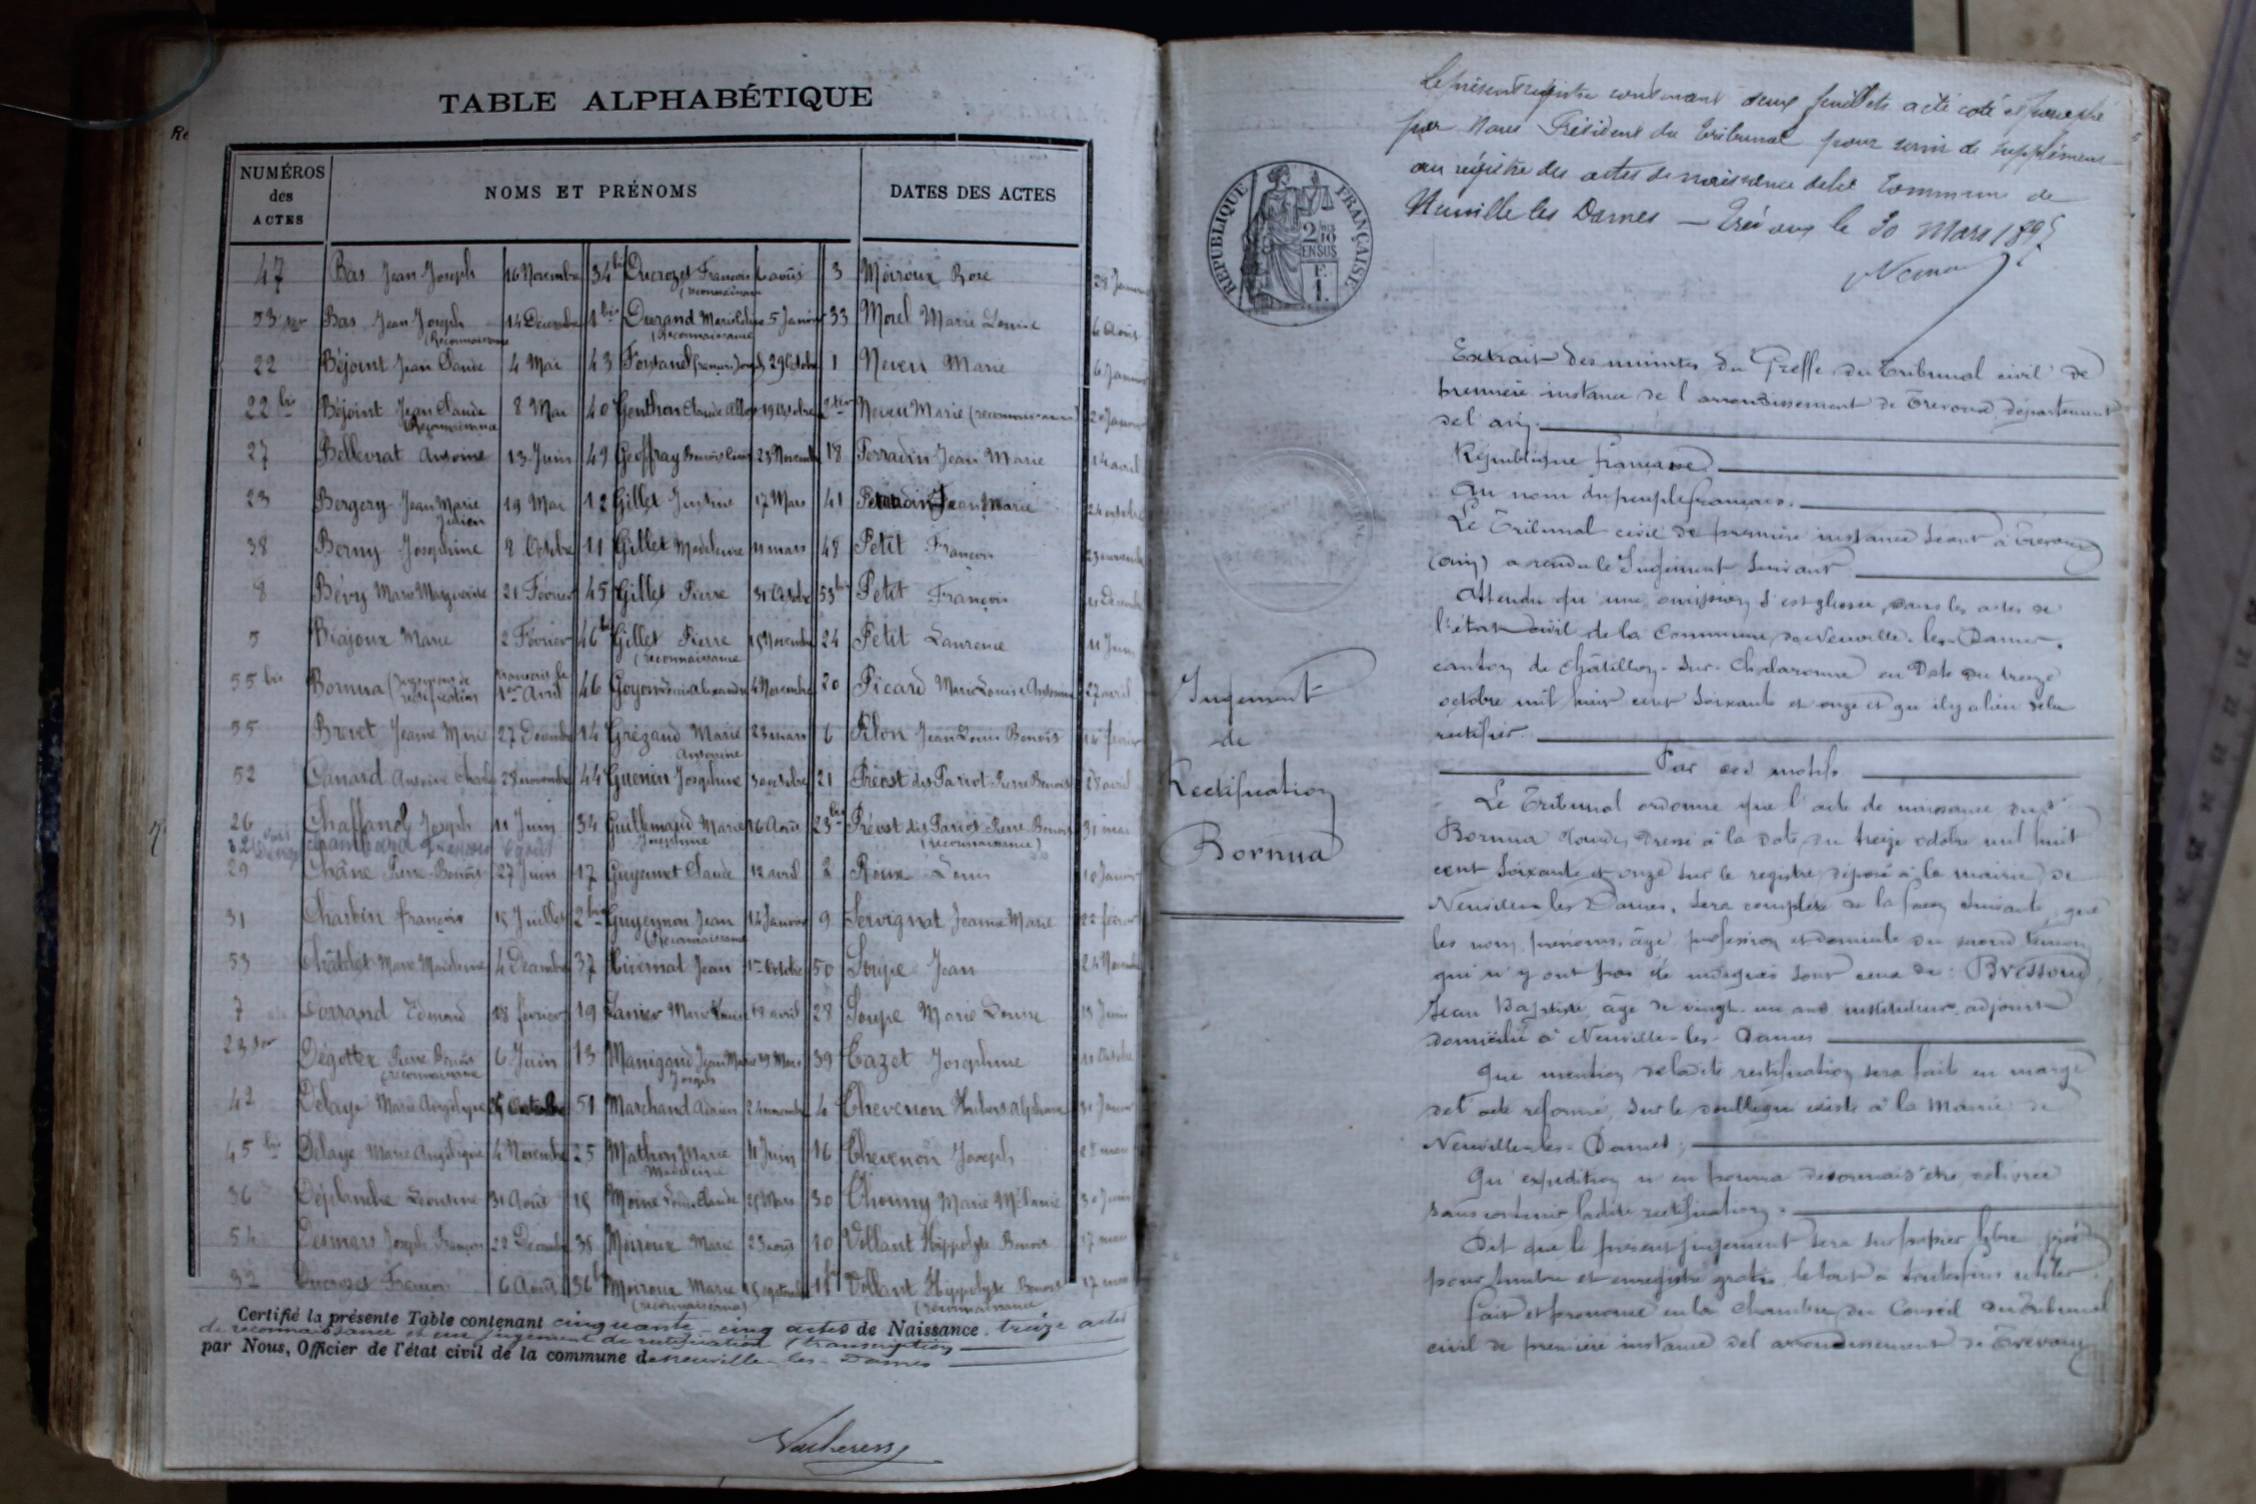 TABLE ALPHABÉTIQUE
NUMÉROS des ACTES
NOMS ET PRÉNOMS
DATES DES ACTES
47 Bas Jean Joseph 16 Novembre 34 bis Ducrozet François 6 août 3 Moiroux Rose 28 Janvier
(reconnaissance
53 ter Bas Jean Joseph 14 Décembre 1 bis Durand Marie 5 Janvier 33 Morel Marie Louise 6 Août
(Reconnaissance (Reconnaissance
22 Béjoint Jean Claude 4 Mai 43 Fontanel 29 Octobre 1 Neveu Marie 6 Janvier
22 bis Béjoint Jean Claude 8 Mai 40 Genthon Claude 19 Octobre 2 ter Neveu Marie (reconnaissance) 20 Janvier
Reconnaissance
27 Bellevrat Antoine 13 Juin 49 Geoffray Benoît 23 Novembre 18 Perradin Jean Marie 14 avril
23 Bergery Jean Marie 19 Mai 12 Gillet Justine 17 Mars 41 Perradin Jean Marie 24 octobre
Julien
38 Berny Josephine 8 Octobre 11 Gillet Madeleine 11 mars 48 Petit François 23 novembre
8 Bévy Marie Marguerite 21 Février 45 Gillet Pierre 31 Octobre 53 bis Petit François Décembre
5 Biajoux Marie 2 Février 46 bis Gillet Pierre 15 Novembre 24 Petit Laurence 11 Juin
(reconnaissance
55 bis Bornua (Jugement de rectification transcrit le 1er Avril 46 Goyon Alexandre 4 Novembre 20 Picard Marie Louise Antonine 27 avril
55 Brevet Jeanne Marie 27 Décembre 14 Grézaud Marie 23 mars 6 Pilon Jean Louis Benoît février
Antonine
52 Canard Antoine Charles 28 novembre 44 Guenin Josephine 30 octobre 21 Prévost des Pariot Pierre Benoît 28 avril
26 Chaffanel Joseph 11 Juin 34 Guillemaud Marie 16 Août 23 bis Prévost des Pariot Pierre Benoît 31 mai
Josephine (reconnaissance)
29 Châne Pierre Benoît 27 Juin 17 Guyennet Claude 12 avril 2 Roux Louis Janvier
31 Charbin François 15 Juillet 2 bis Guyennon Jean 14 Janvier 9 Servignat Jeanne Marie 22 février
(Reconnaissance
53 Châtelet Marie Madeleine 4 Décembre 37 Jean 1er Octobre 50 Soupe Jean 24 Novembre
7 Corrand Edmond 18 février 19 Lanier Marie Louise 19 avril 28 Soupe Marie Louise Juin
23 ter Dégottex Pierre Benoît 6 Juin 13 Manigand Jean Marie 19 Mars 39 Tazet Josephine 11 Octobre
(reconnaissance Joseph
42 Delaye Marie Angelique 25 Octobre 51 Marchand Adrien 24 novembre 4 Thevenon Alphonse Janvier
45 bis Delaye Marie Angélique 4 Novembre 25 Mathon Marie 11 Juin 16 Thevenon Joseph mars
Madeleine
36 Déplanche Léontine 31 Août 15 Moine Louis Claude 25 Mars 30 Thonny Marie Mélanie 30 Juin
54 Desmars Joseph François 22 Décembre 35 Moiroux Marie 23 août 10 Vollant Hippolyte Benoit 17 mars
32 Ducrozet François 6 Août 36 bis Moiroux Marie septembre Vollant Hippolyte Benoit 17 mars
(reconnaissance) (reconnaissance
Certifié la présente Table contenant cinquante-cinq actes de Naissance, treize actes
de reconnaissance et un jugement de rectification (transcription
par Nous, Officier de l'état civil de la commune de Neuville-les-Dames
Le présent registre contenant deux feuillets a été coté et paraphé
par Nous Président du tribunal pour servir de supplément
au registre des actes de naissance de la Commune de
Neuville les Dames — Trévoux le 30 Mars 1895
RÉPUBLIQUE FRANÇAISE
Extrait des minutes du Greffe du Tribunal civil de
première instance de l'arrondissement de Trévoux, département
de l'ain.
République française
Au nom du peuple français.
Le Tribunal civil de première instance séant à Trévoux
(ain) a rendu le Jugement suivant
Attendu qu'une omission s'est glissée dans les actes de
l'état civil de la Commune de Neuville-les-Dames,
canton de Châtillon-sur-Chalaronne en Date du treize
octobre mil huit cent soixante et onze et qu'il y a lieu de la
rectifier.
Par ces motifs
Le Tribunal ordonne que l'acte de naissance du
Bornua Claude, dressé à la Date du treize octobre mil huit
cent soixante et onze sur le registre déposé à la mairie de
Neuville les Dames, sera complété de la façon suivante, que
les nom, prénoms, âge, profession et domicile du second témoin
qui n'y ont pas été indiqués sont ceux de: Bressoud
Jean Baptiste, âgé de vingt-un ans instituteur-adjoint
domicilié à Neuville-les-Dames
Que mention de ladite rectification sera faite en marge
de l'acte réformé, sur le double qui existe à la Mairie de
Neuville-les-Dames;
Qu'expédition n'en pourra désormais être délivrée
sans contenir ladite rectification.
Dit que le présent jugement sera sur papier libre, visé
pour timbre et enregistré gratis, le tout à toutes fins utiles.
Fait et prononcé en la Chambre du Conseil du Tribunal
civil de première instance de l'arrondissement de Trévoux
Jugement
de
Rectification
Bornua